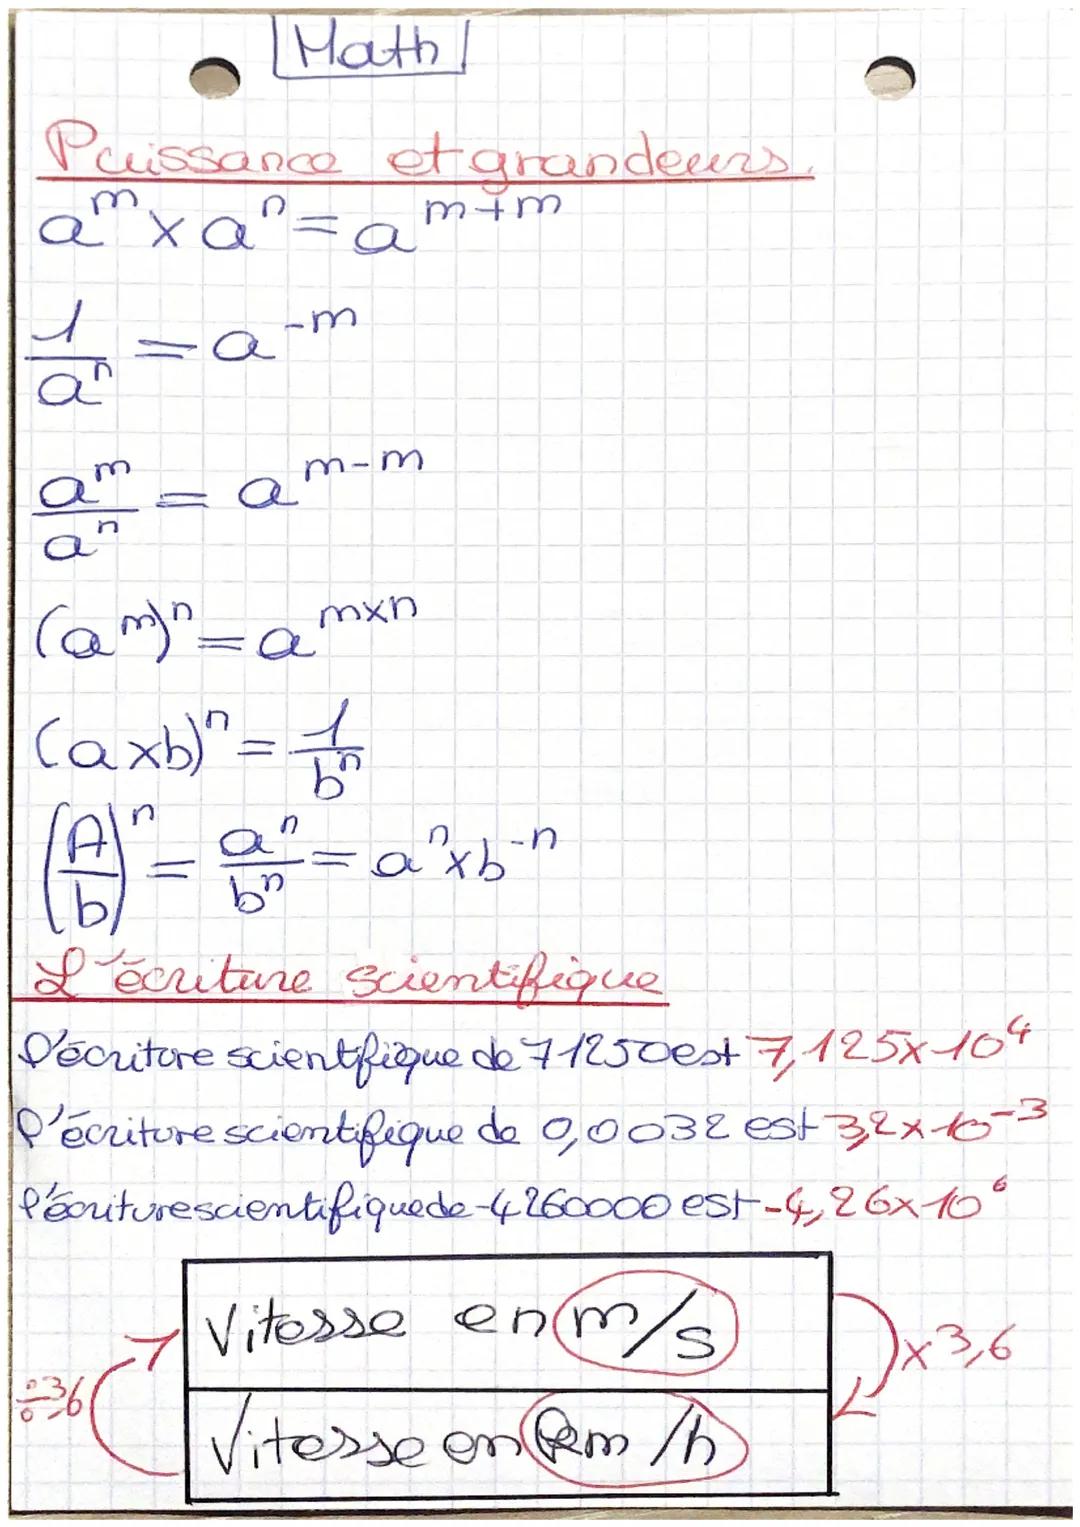 Math
Puissance et grandeurs.
a^m × a^n = a^m+m
1/a^n = a^-m
a^m/a^n = a^m-m
(a^m)^n = a^m×n
(a×b)^n = 1/b^n
(A/b)^n = a^n/b^n = a^n×b^-n
L'écriture scientifique
l'écriture scientifique de 71250 est 7,125×10^4
l'écriture scientifique de 0,0032 est 3,2×10^-3
l'écriture scientifique de -4260000 est -4,26×10^6
Vitesse en m/s
×3,6
÷3,6
Vitesse en km/h